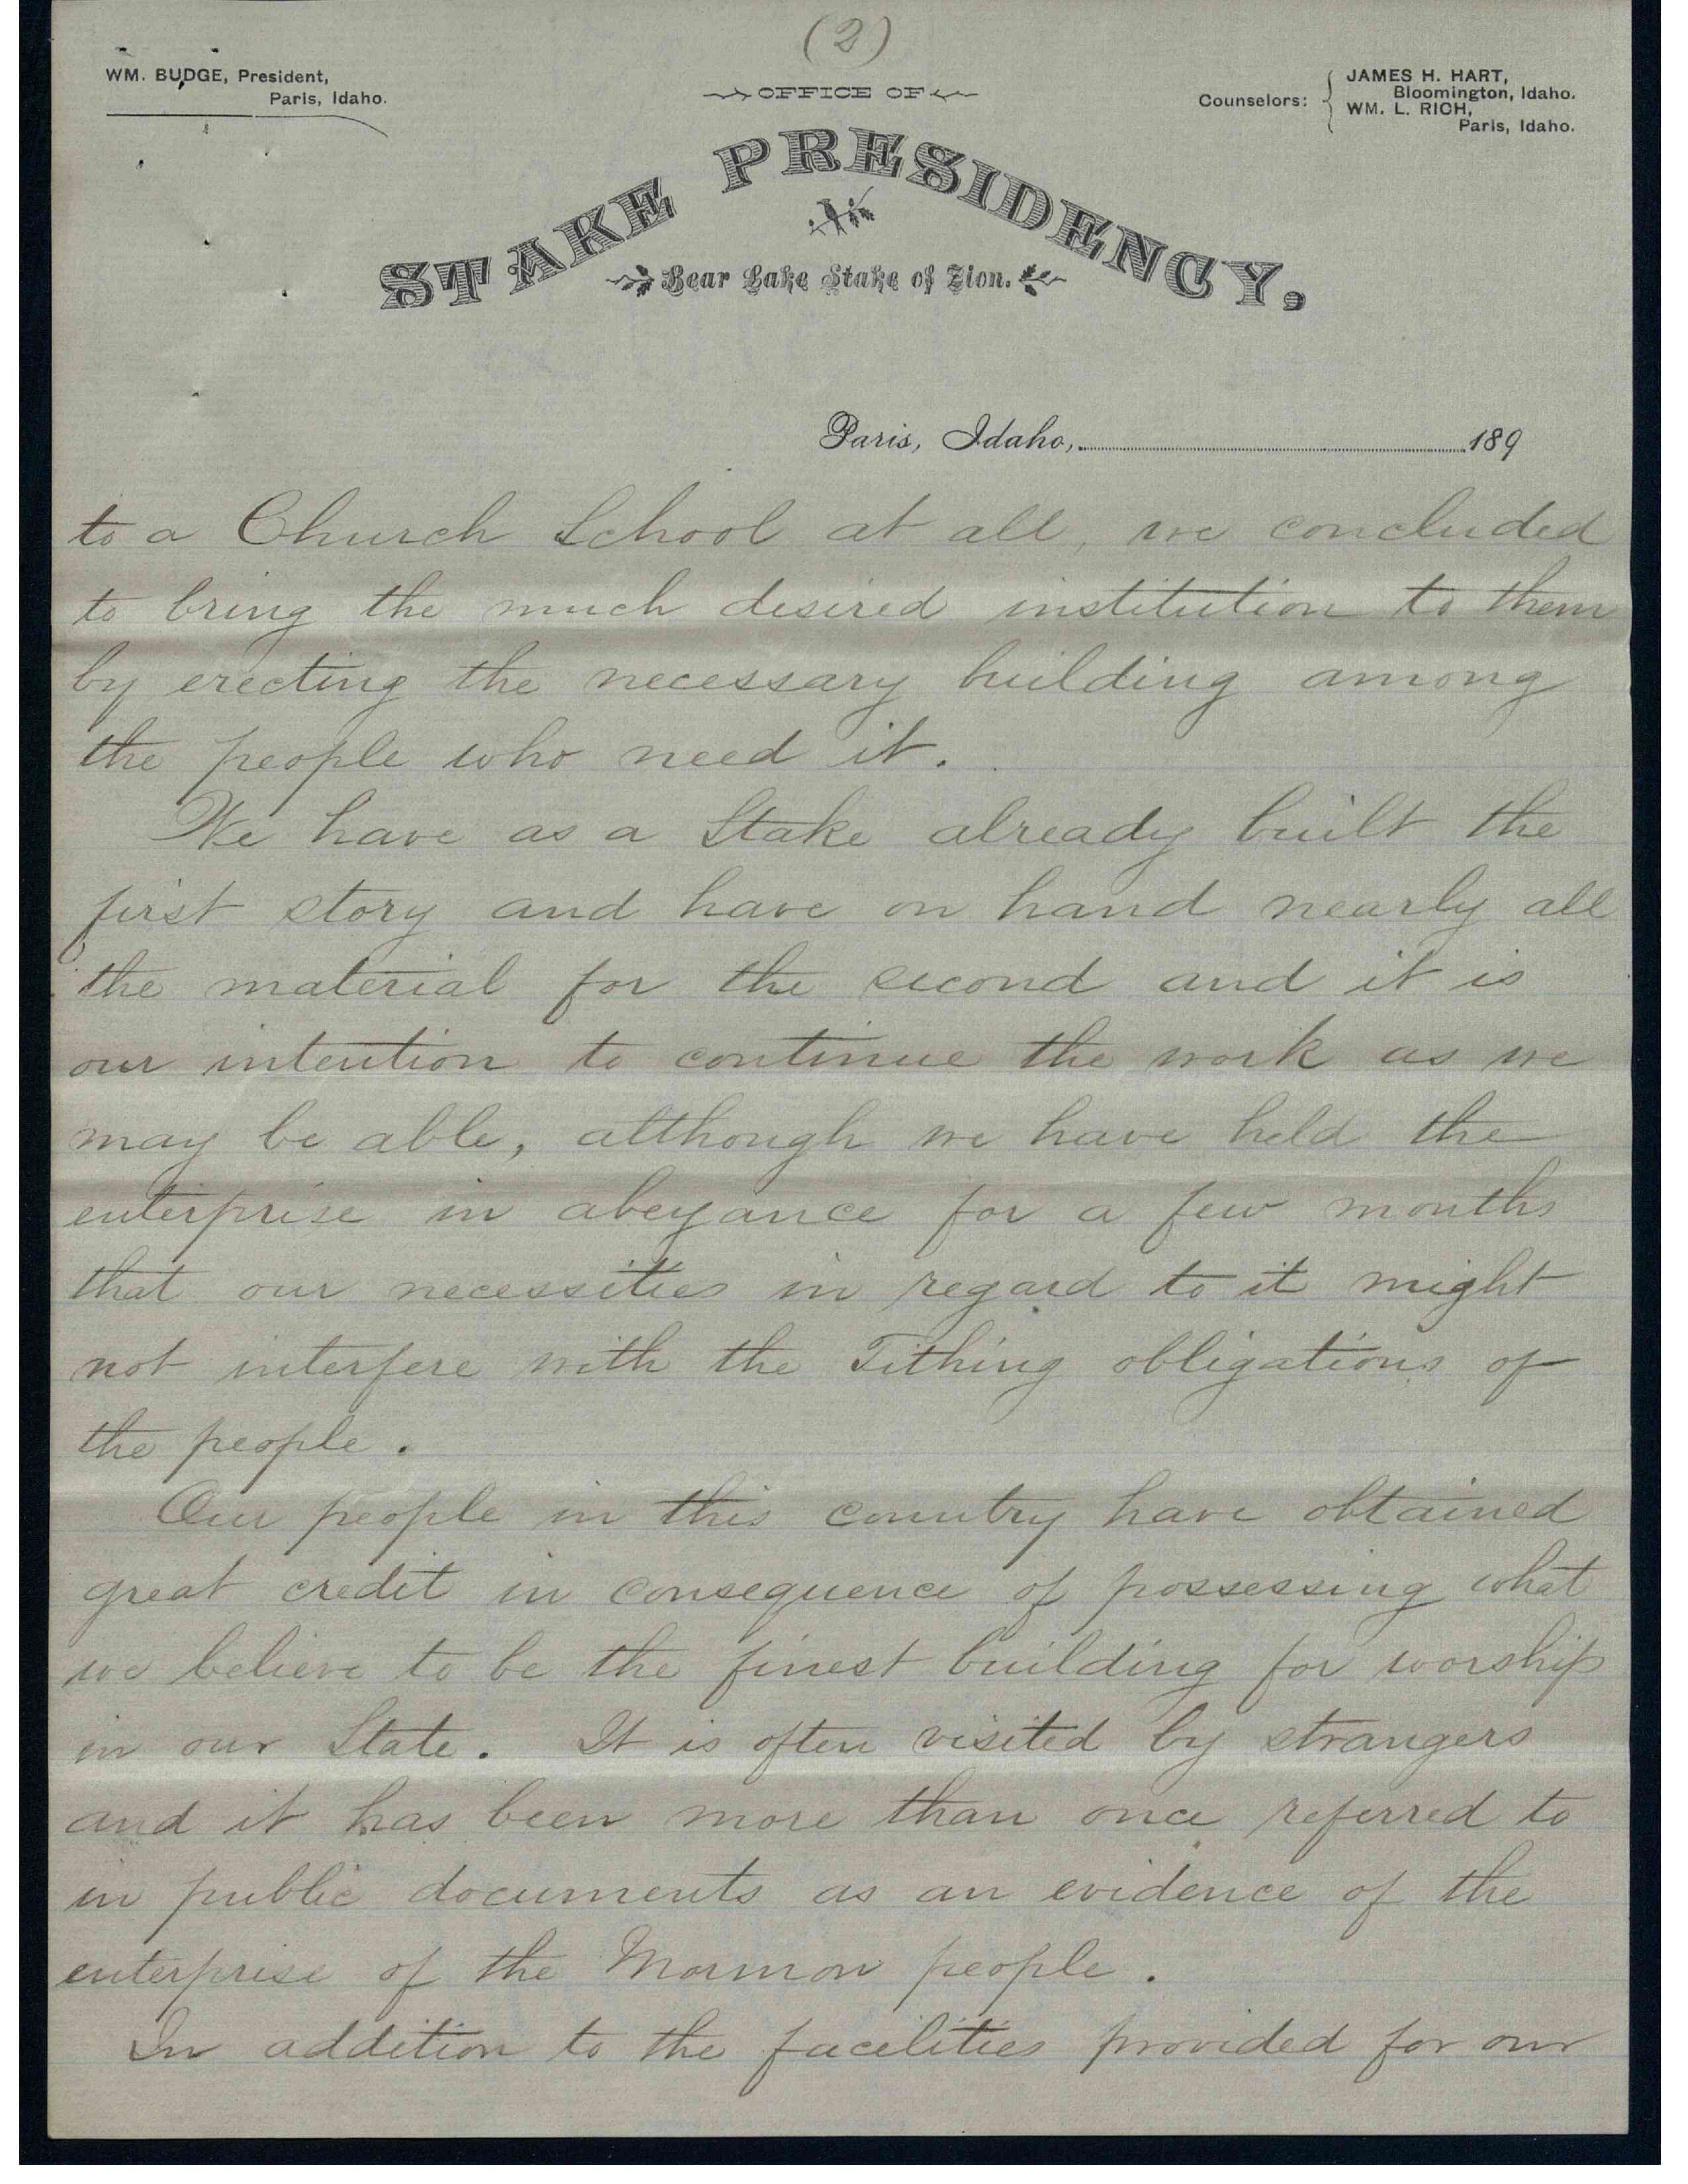 (2)
WM. BUDGE, President,
Paris, Idaho.
OFFICE OF
Counselors:
JAMES H. HART,
Bloomington, Idaho.
WM. L. RICH,
Paris, Idaho.
STAKE PRESIDENCY,
Bear Lake Stake of Zion.
Paris, Idaho, 189
to a Church School at all, we concluded
to bring the much desired institution to them
by erecting the necessary building among
the people who need it.
We have as a Stake already built the
first story and have on hand nearly all
the material for the second and it is
our intention to continue the work as we
may be able, although we have held the
enterprise in abeyance for a few months
that our necessities in regard to it might
not interfere with the Tithing obligations of
the people.
Our people in this country have obtained
great credit in consequence of possessing what
we believe to be the finest building for worship
in our State. It is often visited by strangers
and it has been more than once referred to
in public documents as an evidence of the
enterprise of the Mormon people.
In addition to the facilities provided for our